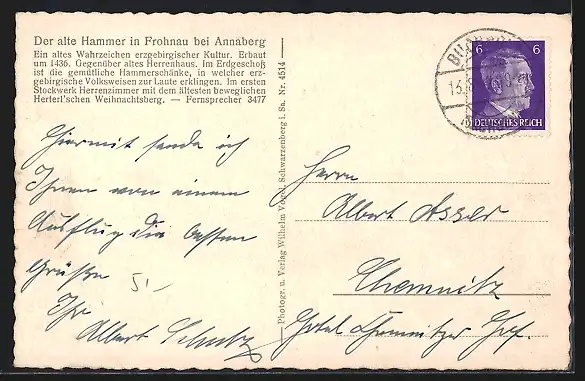 Der alte Hammer in Frohnau bei Annaberg
Ein altes Wahrzeichen erzgebirgischer Kultur. Erbaut
um 1436. Gegenüber altes Herrenhaus. Im Erdgeschoß
ist die gemütliche Hammerschänke, in welcher erz-
gebirgische Volksweisen zur Laute erklingen. Im ersten
Stockwerk Herrenzimmer mit dem ältesten beweglichen
Hertel'schen Weihnachtsberg. — Fernsprecher 3477
Hiermit sende ich
Ihnen von einem
Ausflug die besten
Grüße
Ihr
Albert Schulz
5,-
Photogr. u. Verlag Wilhelm Vogel, Schwarzenberg i. Sa. Nr. 4514
6 6
DEUTSCHES REICH
Herrn
Albert Asser
Chemnitz
Hotel Chemnitzer Hof.